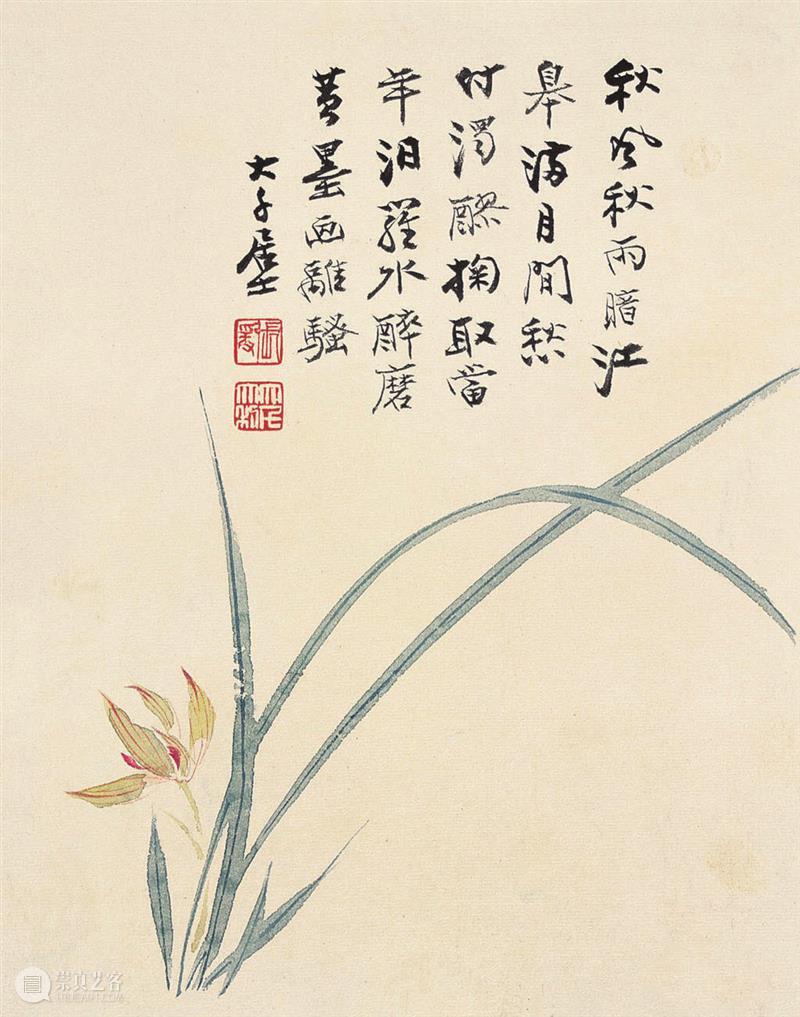 秋風秋雨暗江
皋滿目間愁
付濁醪掬取當
年汨羅水醉磨
黃墨画離騷
大千居士
張爰
崇真艺客
TRUEART.COM